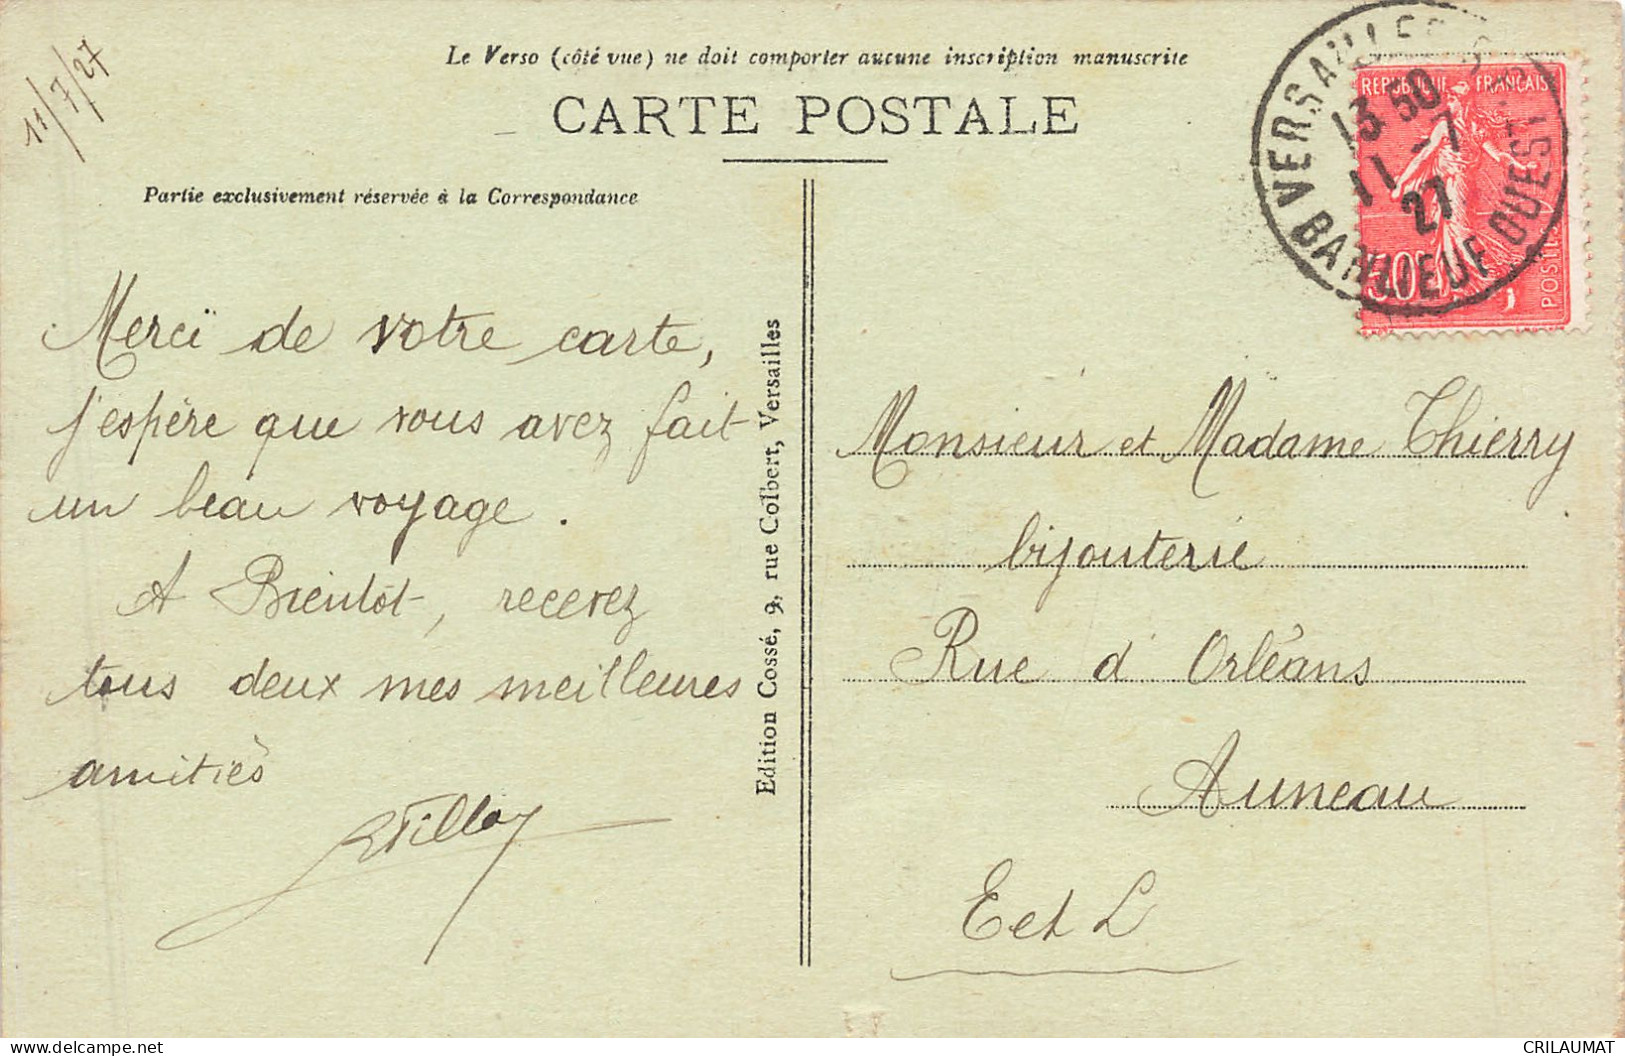 11/7/27
Le Verso (côté vue) ne doit comporter aucune inscription manuscrite
CARTE POSTALE
Partie exclusivement réservée à la Correspondance
VERSAILLES
BANLIEUE OUEST
13 50
11 - 7
27
REPUBLIQUE FRANÇAISE
50
POSTES
Merci de votre carte,
j'espère que vous avez fait
un beau voyage.
A Bientôt, recevez
tous deux mes meilleures
amitiés
Edition Cossé, 9, rue Colbert, Versailles
Monsieur et Madame Thierry
bijouterie
Rue d'Orléans
Auneau
E et L
CRILAUMAT